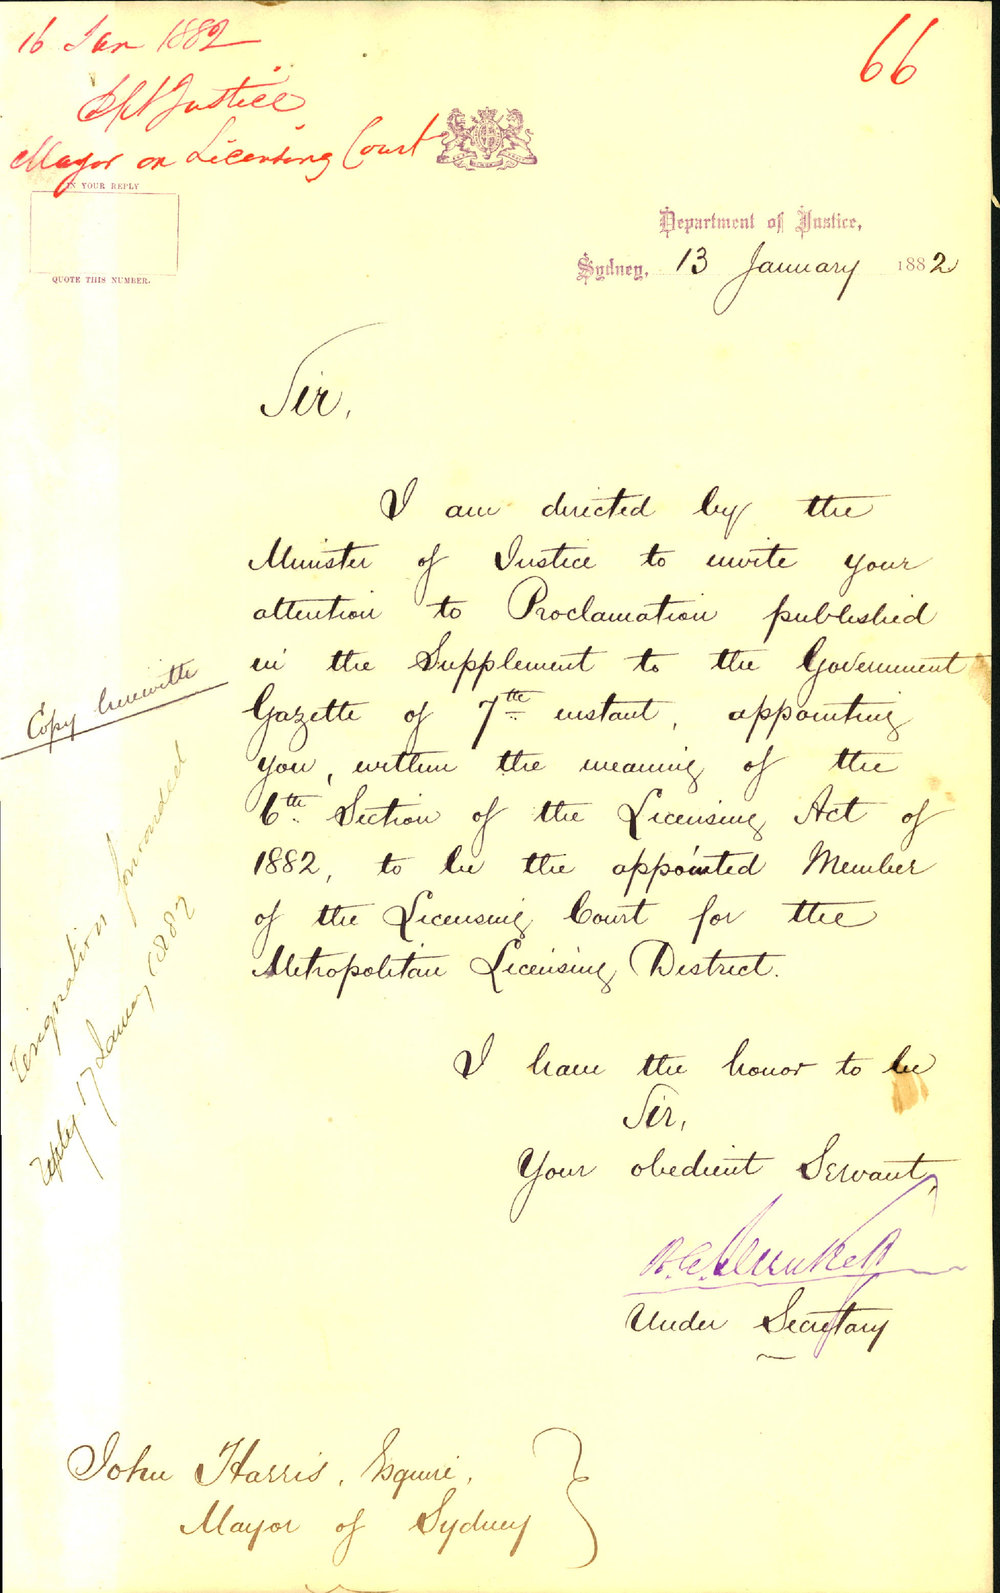 16 Jan 1882
66
Dpt Justice
Mayor on Licensing Court
IN YOUR REPLY
QUOTE THIS NUMBER.
Department of Justice,
Sydney, 13 January 1882
Sir,
I am directed by the
Minister of Justice to invite your
attention to Proclamation published
in the Supplement to the Government
Copy herewith
Gazette of 7th instant, appointing
you, within the meaning of the
6th Section of the Licensing Act of
1882, to be the appointed Member
of the Licensing Court for the
Metropolitan Licensing District.
resignation forwarded
reply 17 January 1882
I have the honor to be
Sir,
Your obedient Servant,
Under Secretary
John Harris, Esquire,
Mayor of Sydney